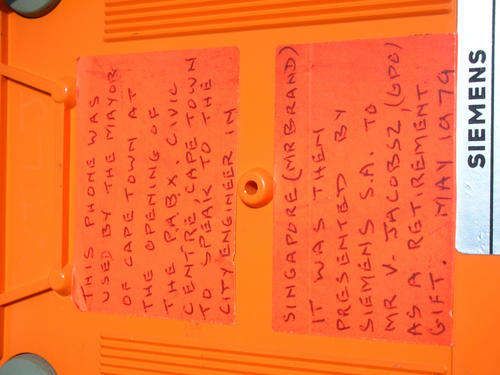 THIS PHONE WAS
USED BY THE MAYOR
OF CAPE TOWN AT
THE OPENING OF
THE PABX. CIVIC
CENTRE, CAPE TOWN
TO SPEAK TO THE
CITY ENGINEER IN
SINGAPORE (MR BRAND)
IT WAS THEN
PRESENTED BY
SIEMENS S.A. TO
MR V. JACOBSZ (GPO)
AS A RETIREMENT
GIFT. MAY 1979
SIEMENS